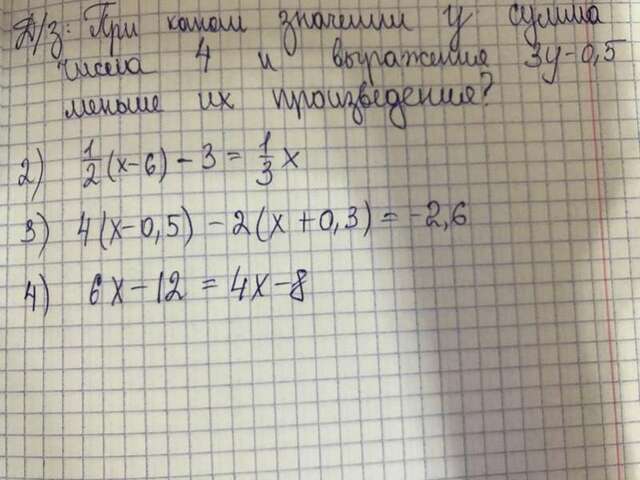 Д/з: При каком значении у сумма
числа 4 и выражение 3у-0,5
меньше их произведение?
2) 1/2(x-6) - 3 = 1/3 x
3) 4(x-0,5) - 2(x+0,3) = -2,6
4) 6x-12 = 4x-8